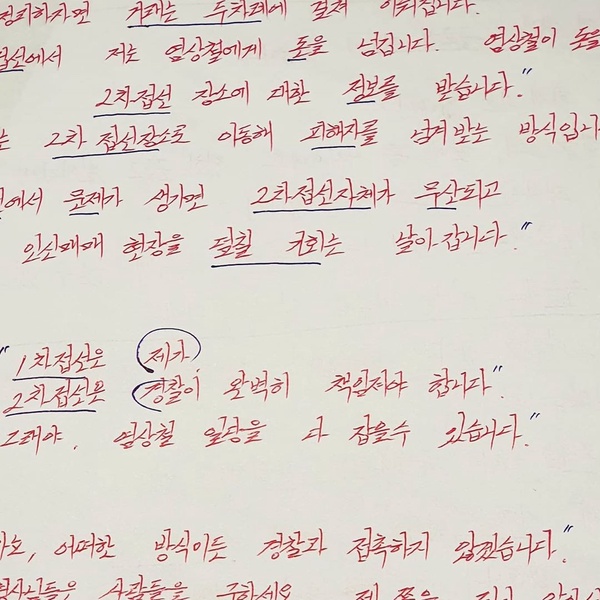 정리하자면 거래는 두차례에 걸쳐 이뤄집니다.
접선에서 저는 염상철에게 돈을 넘깁니다. 염상철이 돈을
2차접선 장소에 대한 정보를 받습니다."
는 2차 접선장소로 이동해 피해자를 넘겨받는 방식입니
에서 문제가 생기면 2차접선자체가 무산되고
인신매매 현장을 덮칠 기회는 날아갑니다."
"1차접선은 제가,
2차접선은 경찰이 완벽히 책임져야 합니다".
그래야, 염상철 일당을 다 잡을수 있습니다."
어떠한 방식이든 경찰과 접촉하지 않겠습니다."
사람들을 구하세요